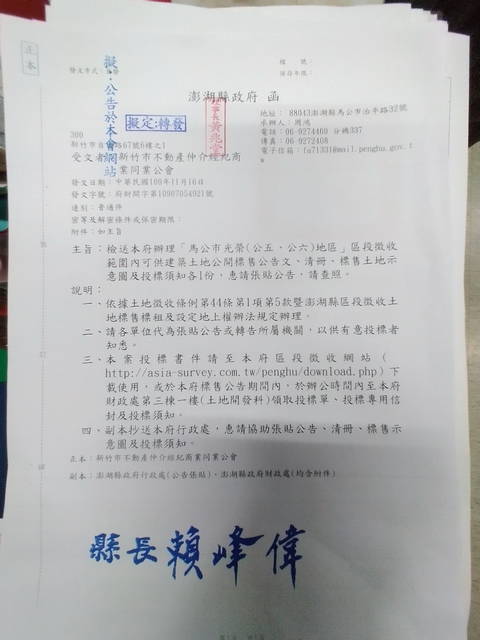 正本
檔　號：
保存年限：
發文方式：
擬：公告於本會網站
擬定：轉發
理事長黃兆堂
澎湖縣政府　函
地址：88043澎湖縣馬公市治平路32號
承辦人：周鴻
電話：06-9274400 分機337
傳真：06-9272408
電子信箱：fa7133@mail.penghu.gov.t
w
300
新竹市 67號6樓之1
受文者：新竹市不動產仲介經紀商
業同業公會
發文日期：中華民國109年11月16日
發文字號：府財開字第10907054921號
速別：普通件
密等及解密條件或保密期限：
附件：如主旨
主旨：檢送本府辦理「馬公市光榮(公五、公六)地區」區段徵收
範圍內可供建築土地公開標售公告文、清冊、標售土地示
意圖及投標須知各1份，惠請張貼公告，請查照。
說明：
一、依據土地徵收條例第44條第1項第5款暨澎湖縣區段徵收土
地標售標租及設定地上權辦法規定辦理。
二、請各單位代為張貼公告或轉告所屬機關，以供有意投標者
知悉。
三、本案投標書件請至本府區段徵收網站(
http://asia-survey.com.tw/penghu/download.php)下
載使用，或於本府標售公告期間內，於辦公時間內至本府
財政處第三棟一樓(土地開發科)領取投標單、投標專用信
封及投標須知。
四、副本抄送本府行政處，惠請協助張貼公告、清冊、標售示
意圖及投標須知。
正本：新竹市不動產仲介經紀商業同業公會
副本：澎湖縣政府行政處(公告張貼)、澎湖縣政府財政處(均含附件)
縣長賴峰偉